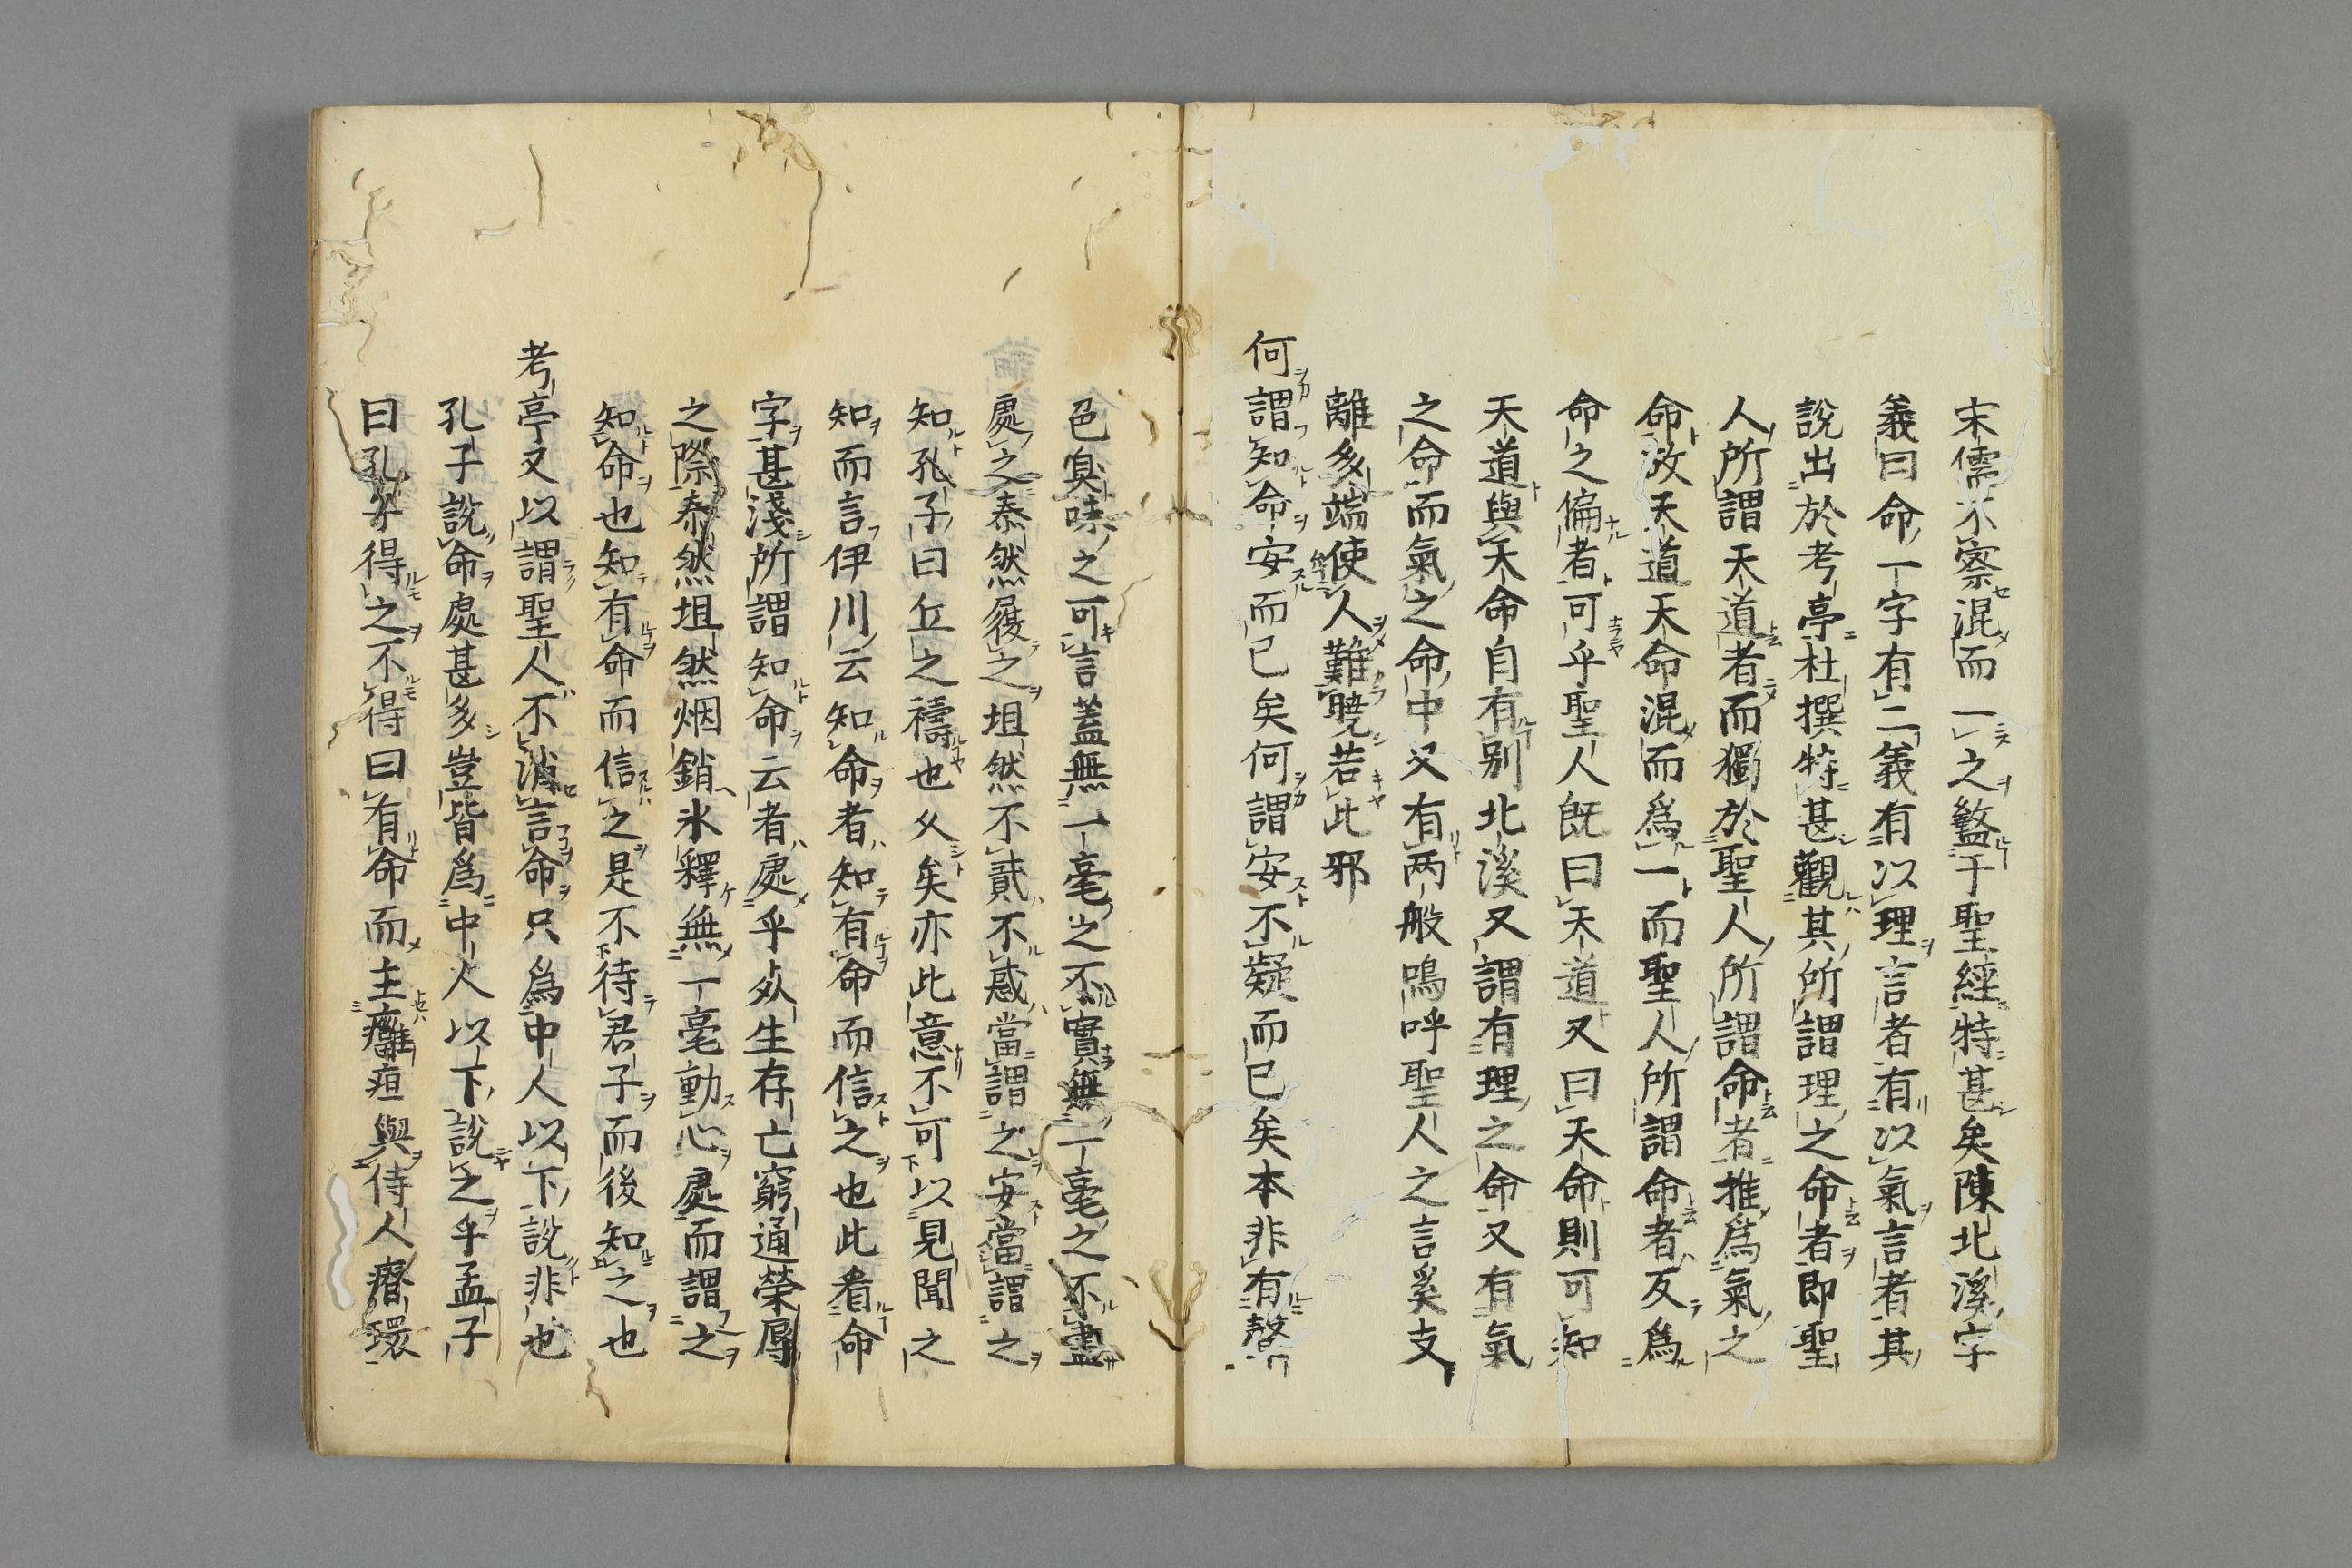 宋儒不察混而一之盭于聖經特甚矣陳北溪字
義曰命一字有二義有以理言者有以氣言者其
說出於考亭杜撰特甚觀其所謂理之命者即聖
人所謂天道者而獨於聖人所謂命者推爲氣之
命故天道天命混而爲一而聖人所謂命者反爲
命之偏者可乎聖人既曰天道又曰天命則可知
天道與天命自有別北溪又謂有理之命又有氣
之命而氣之命中又有两般嗚呼聖人之言奚支
離多端使人難曉若此邪
何謂知命安而已矣何謂安不疑而已矣本非有聲
色臭味之可言蓋無一毫之不實無一毫之不盡
處之泰然履之坦然不貳不惑當謂之安當謂之
知孔子曰丘之禱也久矣亦此意不可以見聞之
知而言伊川云知命者知有命而信之也此看命
字甚淺所謂知命云者處乎死生存亡窮通榮辱
之際泰然坦然烟銷氷釋無一毫動心處而謂之
知命也知有命而信之是不待君子而後知之也
考亭又以謂聖人不消言命只爲中人以下說非也
孔子說命處甚多豈皆爲中人以下說之乎孟子
曰孔子得之不得曰有命而主癰疽與侍人瘠環